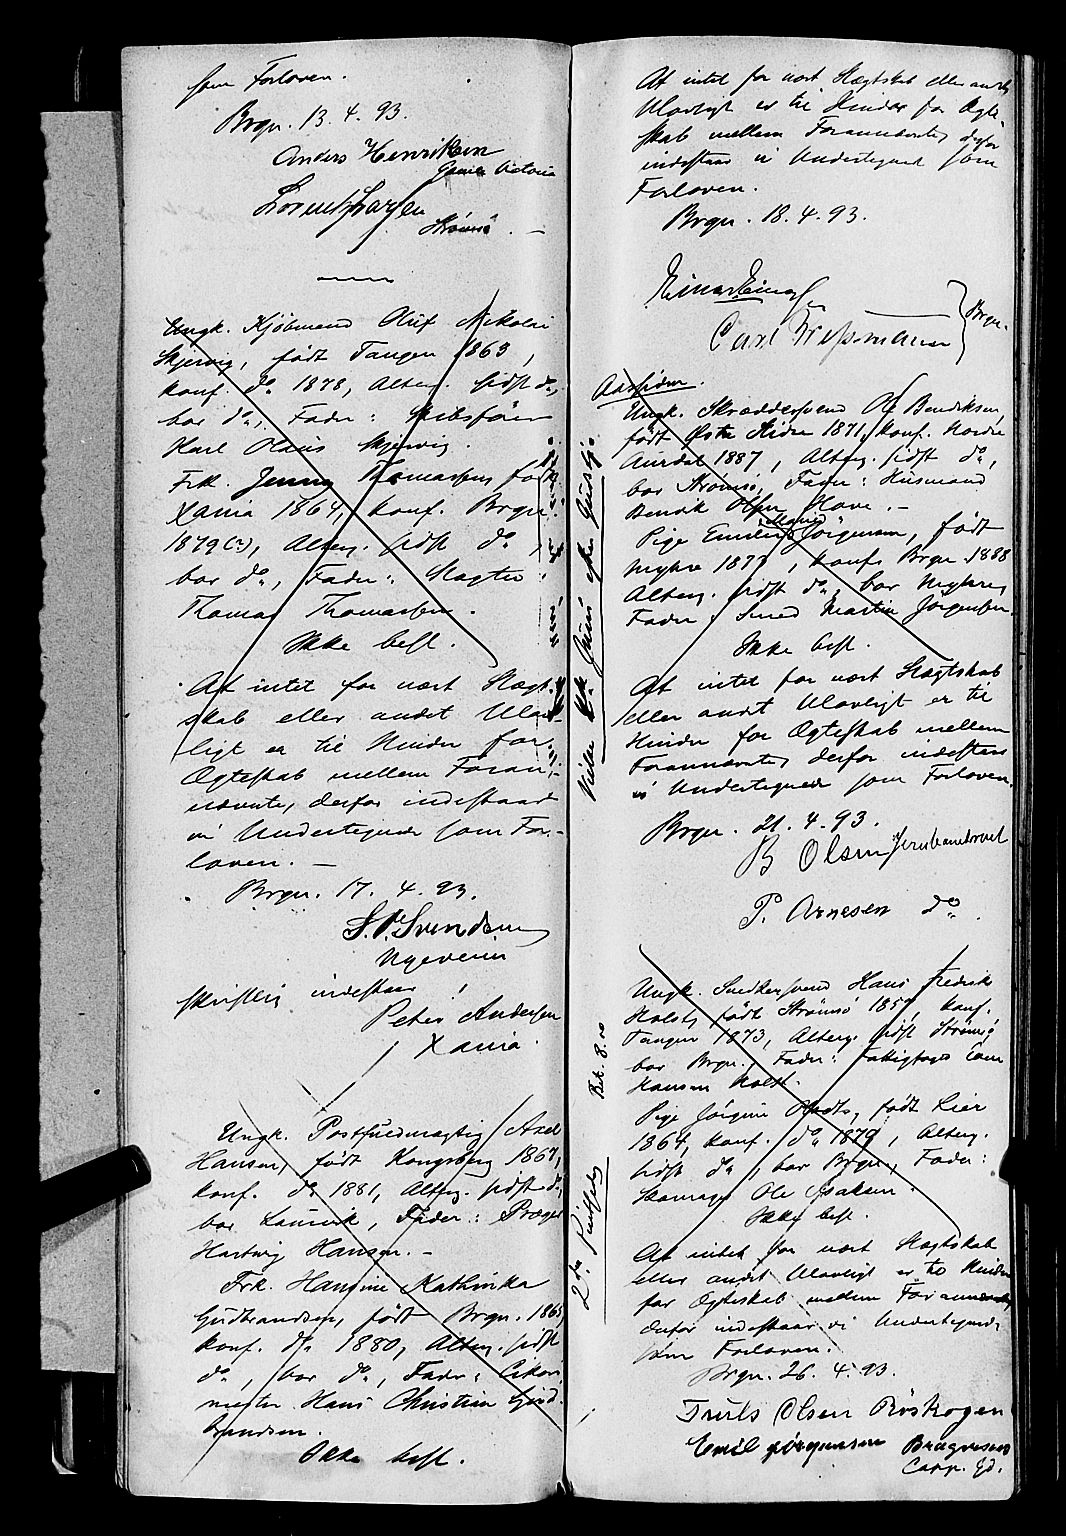 som Forloven.
Brgn. 13. 4. 93.
Anders Henriksen
Gamle Victoria
Lorentz Larsen
Strömsö. —
Ungk. Kjöbmand Oluf Nikolai
Skjervig, födt Tangen 1863,
konf. do 1878, Alterg. sidst do,
bor do, Fader: Skibsförer
Karl Olaus Skjervig.
Frk. Jenny Thomassen, födt
Xania 1864, konf. Brgn.
1879 (?), Alterg. sidst do,
bor do, Fader: Slagter
Thomas Thomassen.
Ikke besl.
At intet for nært Slægt-
skab eller andet Ulov-
ligt er til Hinder for
Ægteskab mellem Foran-
nævnte, derfor indestaar
vi Undertegnede som For-
loven. —
Brgn. 17. 4. 93.
S. P. Svendsen
Nyeveien
skriftlig indestaar:
Peter Andersen
Xania.
Ungk. Postfuldmægtig Axel
Hansen, födt Kongsberg 1867,
konf. do 1881, Alterg. sidst do,
bor Laurvik, Fader:
Hartvig Hansen. —
Frk. Hansine Kathinka
Gudbrandsen, födt Brgn. 1865,
konf. do 1880, Alterg. sidst
do, bor do, Fader:
mester Hans Christian Gud-
brandsen.
Ikke besl.
At intet for nært Slægtskab eller andet
Ulovligt er til Hinder for Ægte-
skab mellem Forannævnte, derfor
indestaar vi Undertegnede som
Forloven.
Brgn. 18. 4. 93.
Carl Tressmann
Brgn.
Aassiden.
Ungk. Skræddersvend Ole Bendiksen,
födt Östre Slidre 1871, konf. Nordre
Aurdal 1887, Alterg. sidst do,
bor Strömsö, Fader: Husmand
Bendik Olsen Hove. —
Pige Emilie Marie Jörgensen, födt
Mykre 1873, konf. Brgn. 1888
Alterg. sidst do, bor Mykre,
Fader: Smed Martin Jörgensen
Ikke besl.
At intet for nært Slægtskab
eller andet Ulovligt er til
Hinder for Ægteskab mellem
Forannævnte, derfor indestaar
vi Undertegnede som Forloven.
Brgn. 21. 4. 93.
B Olsen Jernbanebrovet
P. Arnesen do.
Ungk. Snedkersvend Hans Fredrik
Holst, födt Strömsö 1859, konf.
Tangen 1873, Alterg. sidst Strömsö
bor Brgn., Fader: Lars
Hansen Holst.
Pige Jörgine födt Lier
1864, konf. do 1879, Alterg.
sidst do, bor Brgn., Fader:
Skomager Ole Isaksen.
Ikke besl.
At intet for nært Slægtskab
eller andet Ulovligt er til Hinder
for Ægteskab mellem Forannævnte,
derfor indestaar vi Undertegnede
som Forloven.
Brgn. 26. 4. 93.
Truls Olsen Röskogen
Emil Jörgensen Bragernes
Carp. Gd.
Bet. 8.00